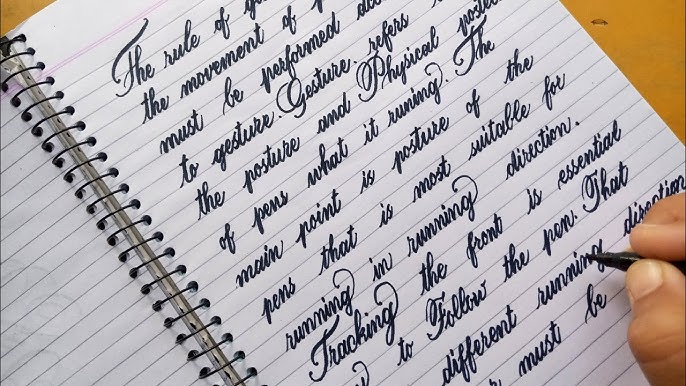 The rule of
the movement of
must be performed
to gesture. Gesture. refers
the posture and Physical
of pens what it runing. The
main point is posture of the
pens that is most suitable for
running in running direction.
Tracking the front is essential
to Follow the pen. That
different running direction
must be